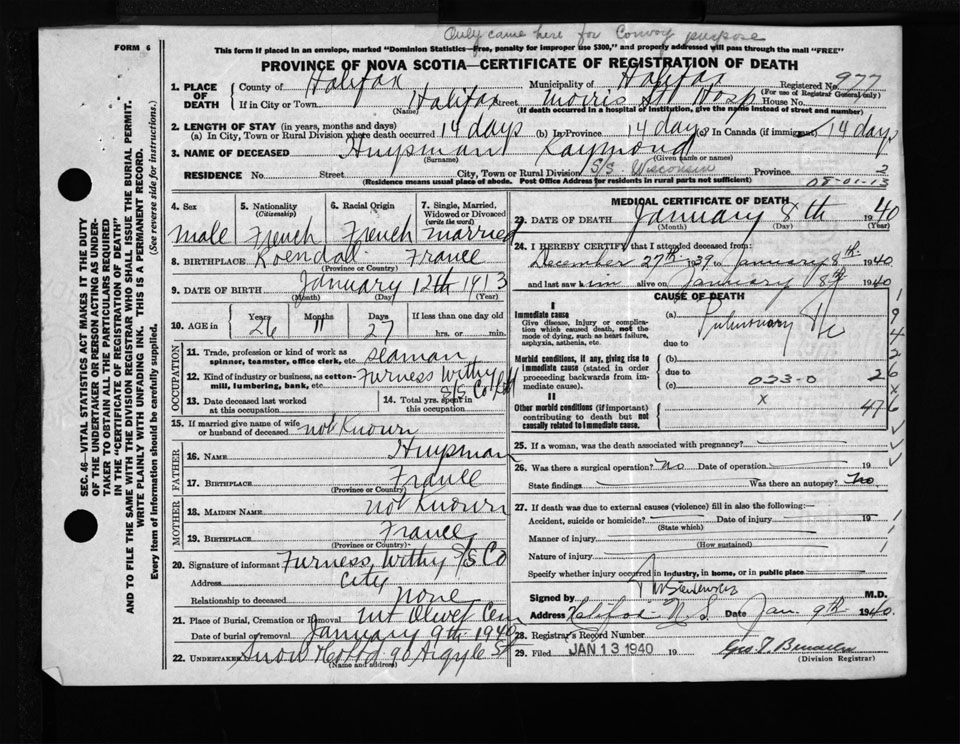 Only came here for Convoy purpose
FORM 6
This form if placed in an envelope, marked "Dominion Statistics—Free, penalty for improper use $300," and properly addressed will pass through the mail "FREE"
PROVINCE OF NOVA SCOTIA—CERTIFICATE OF REGISTRATION OF DEATH
1. PLACE OF DEATH County of Halifax Municipality of Halifax Registered No. 977
(For use of Registrar General only)
If in City or Town Halifax Street Morris St Hosp House No.
(Name) (If death occurred in a hospital or institution, give the name instead of street and number)
2. LENGTH OF STAY (in years, months and days)
(a) In City, Town or Rural Division where death occurred 14 days (b) In Province 14 days (c) In Canada (if immigrant) 14 days
3. NAME OF DECEASED Huysman Raymond
(Surname) (Given name or names)
RESIDENCE No. Street City, Town or Rural Division S/S Wisconsin Province 2
(Residence means usual place of abode. Post Office Address for residents in rural parts not sufficient) 08-01-13
4. Sex 5. Nationality (Citizenship) 6. Racial Origin 7. Single, Married, Widowed or Divorced (write the word)
male French French married
8. BIRTHPLACE France
(Province or Country)
9. DATE OF BIRTH January 12th 1913
(Month) (Day) (Year)
10. AGE in Years Months Days If less than one day
26 11 27 hrs. or min.
OCCUPATION
11. Trade, profession or kind of work as spinner, teamster, office clerk, etc. seaman
12. Kind of industry or business, as cotton-mill, lumbering, bank, etc. Furness Withy S/S Co Ltd
13. Date deceased last worked at this occupation
14. Total yrs. spent in this occupation
15. If married give name of wife or husband of deceased not Known
FATHER
16. Name Huysman
17. Birthplace France
(Province or Country)
MOTHER
18. Maiden Name not Known
19. Birthplace France
(Province or Country)
20. Signature of informant Furness, Withy S/S Co
Address City
Relationship to deceased none
21. Place of Burial, Cremation or Removal Mt Olivet Cem
Date of burial or removal January 9th 1940
22. Undertaker Snow 90 Argyle St
(Name and address)
MEDICAL CERTIFICATE OF DEATH
23. DATE OF DEATH January 8th 1940
(Month) (Day) (Year)
24. I HEREBY CERTIFY that I attended deceased from:
December 27th 1939 to January 8th 1940
and last saw him alive on January 8th 1940
CAUSE OF DEATH
I
Immediate cause
Give disease, injury or complication which caused death, not the mode of dying, such as heart failure, asphyxia, asthenia, etc.
(a) Pulmonary Tbc
due to
Morbid conditions, if any, giving rise to immediate cause (stated in order proceeding backwards from immediate cause).
(b)
due to
(c) 033-0 2
II
Other morbid conditions (if important) contributing to death but not causally related to immediate cause.
x 476
25. If a woman, was the death associated with pregnancy?
26. Was there a surgical operation? no Date of operation 19
State findings Was there an autopsy? no.
27. If death was due to external causes (violence) fill in also the following:—
Accident, suicide or homicide? Date of injury 19
(State which)
Manner of injury
(How sustained)
Nature of injury
Specify whether injury occurred in industry, in home, or in public place
Signed by M.D.
Address Halifax N.S. Date Jan. 9th 1940.
28. Registrar's Record Number
29. Filed JAN 13 1940 19
(Division Registrar)
SEC. 46—VITAL STATISTICS ACT MAKES IT THE DUTY
OF THE UNDERTAKER OR PERSON ACTING AS UNDER-
TAKER TO OBTAIN ALL THE PARTICULARS REQUIRED
IN THE "CERTIFICATE OF REGISTRATION OF DEATH"
AND TO FILE THE SAME WITH THE DIVISION REGISTRAR WHO SHALL ISSUE THE BURIAL PERMIT.
WRITE PLAINLY WITH UNFADING INK. THIS IS A PERMANENT RECORD.
Every item of information should be carefully supplied. (See reverse side for instructions.)